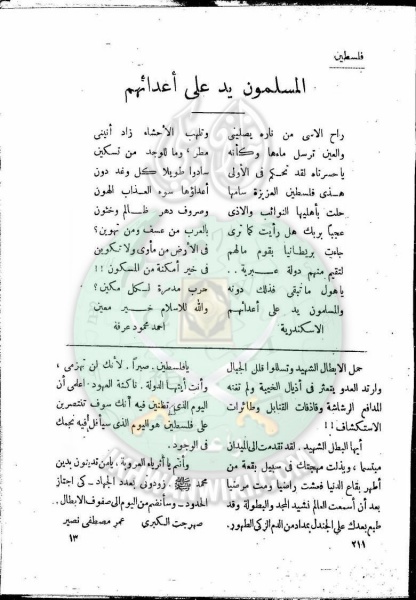 فلسطين
المسلمون يد على أعدائهم
راح الاسى من ناره يصلينى وتلهب الأحشاء زاد أنينى
والعين ترسل ماءها وكأنه مطر، وما للوجد من تسكين
ياحسرتاه لقد تحكم فى الأولى سادوا طويلا كل وغد دون
هذى فلسطين العزيزة سامها أعداؤها سوء العذاب الهون
حلت بأهليها النوائب والاذى وصروف دهر ظالم وخئون
عجبا بربك هل رأيت كما ترى بالعرب من عسف ومن تهوين؟
جاءت بريطانيا بقوم مالهم فى الأرض من مأوى ولا تكوين
لتقيم منهم دولة عبرية.. فى خير أمكنة من المسكون!!
ياهول ماتبغى فذلك دونه حرب مدمرة لكل مكين؟
والمسلمون يد على أعدائهم والله للاسلام خير معين
الاسكندرية احمد محمود عرفة
حمل الابطال الشهيد وتسللوا فلل الجبال
وارتد العدو يتعثر فى أذيال الخيبة ولم تغنه
المدافع الرشاشة وقاذفات القنابل وطائرات
الاستكشاف!!
أيها البطل الشهيد. لقد تقدمت الى الميدان
مبتسما، وبذلت مهجتك فى سبيل بقعة من
أطهر بقاع الدنيا فعشت راضيا ومت مرضيا
بعد أن أسمعت العالم نشيد المجد والبطولة وقد
طبع بعدك على الجندل بمداد من الدم الزكى الطهور.
يافلسطين. صبرا. لأنك لن تهزمى،
وأنت أيتها الدولة. ناكثة العهود. اعلمى أن
اليوم الذى تظنين فيه أنك سوف تنتصرين
على فلسطين هو اليوم الذى سيأفل فيه نجمك
فى الوجود.
وأنتم يا أثرياء العروبة، يامن تدينون بدين
محمد ﷺ. زودونى بعدد الجهاد. كى اجتاز
الحدود. وسأنضم من اليوم الى صفوف الابطال..
صهرجت الكبرى عمر مصطفى نصير
٢١١
١٣